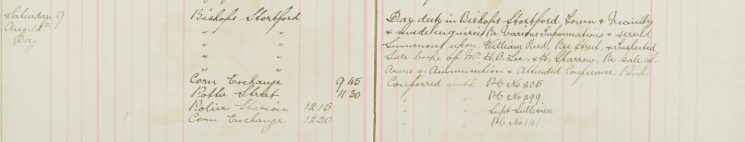 Saturday 9
Augst
Day
Bishops Stortford
" "
" "
" "
" "
Corn Exchange 9 45
Potter Street 11 30
Police Station 12 15
Corn Exchange 12 30
1
Day duty in Bishops Stortford Town & Vicinity
& made enquiries Re various Informations & served
Summons upon William Reed, Street, & Inspected
Sale books of Mr. H.O. Lee & H. Sharrow, Re Sale of
Arms & Ammunition & Attended Conference Points
Conferred with PC No 205
" " PC No 299
" " Supt Sullivan
" " PC No 141